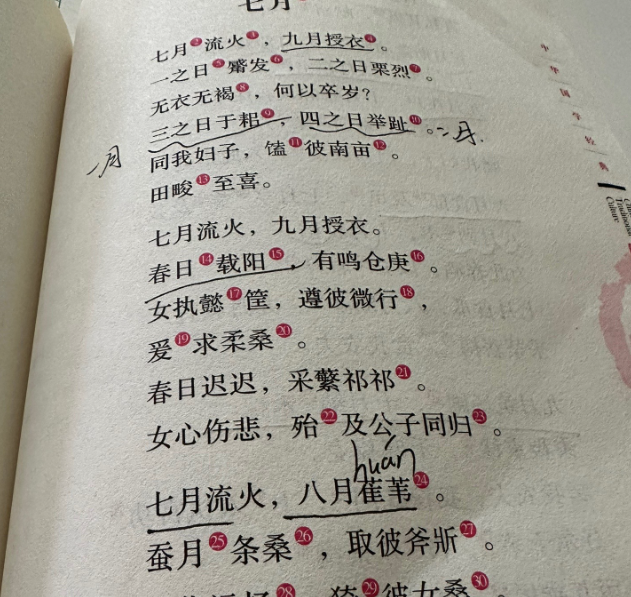 七月
七月②流火③，九月授衣④。
一之日⑤觱发⑥，二之日栗烈⑦。
无衣无褐⑧，何以卒岁？
三之日于耜⑨，四之日举趾⑩。二月.
一月
同我妇子，馌⑪彼南亩⑫。
田畯⑬至喜。
七月流火，九月授衣。
春日⑭载阳⑮，有鸣仓庚⑯。
女执懿⑰筐，遵彼微行⑱，
爰⑲求柔桑⑳。
春日迟迟，采蘩祁祁㉑。
女心伤悲，殆㉒及公子同归㉓。
huán
七月流火，八月萑苇㉔。
蚕月㉕条桑㉖，取彼斧斨㉗。
㉘猗㉙彼女桑㉚
中华国学经典